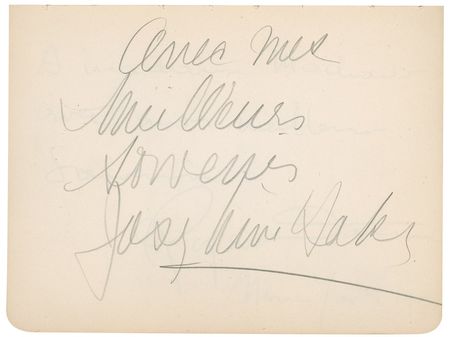 Avec mes
meilleurs
souvenirs
Josephine Baker